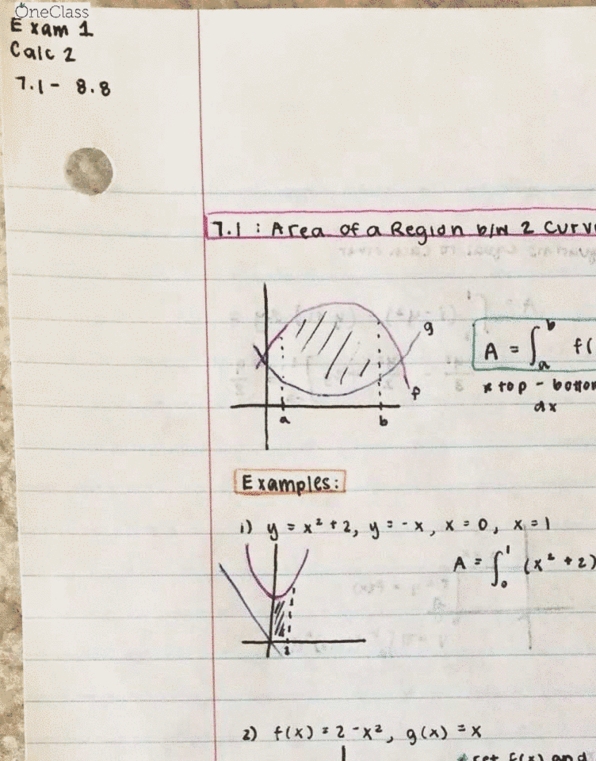 OneClass
Exam 1
Calc 2
7.1 - 8.8
7.1 : Area of a Region b/w 2 Curv
g
f
a
b
A = ∫ₐᵇ f(
* top - bottom
dx
Examples:
1) y = x² + 2, y = -x, x = 0, x = 1
A = ∫₀¹ (x² + 2)
1
2) f(x) = 2 - x², g(x) = x
* set f(x) and